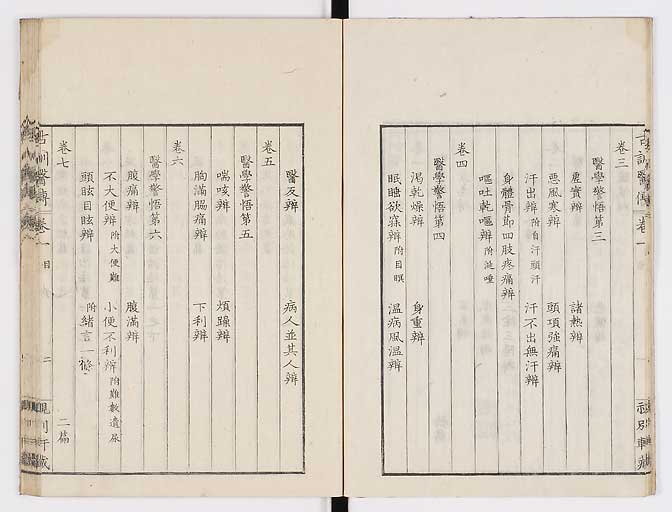 卷三
醫學警悟第三
虛實辨 諸熱辨
惡風寒辨 頭項強痛辨
汗出辨 附自汗頭汗 汗不出無汗辨
身體骨節四肢疼痛辨
嘔吐乾嘔辨 附涎唾
卷四
醫學警悟第四
渴乾燥辨 身重辨
眠睡欲寐辨 附目瞑 溫病風溫辨
醫反辨 病人並其人辨
卷五
醫學警悟第五
喘咳辨 煩躁辨
胸滿脇痛辨 下利辨
卷六
醫學警悟第六
腹痛辨 腹滿辨
不大便辨 附大便難 小便不利辨 附難數遺尿
頭眩目眩辨 附緒言一條
卷七 二篇
古訓醫傳 卷一 目 二